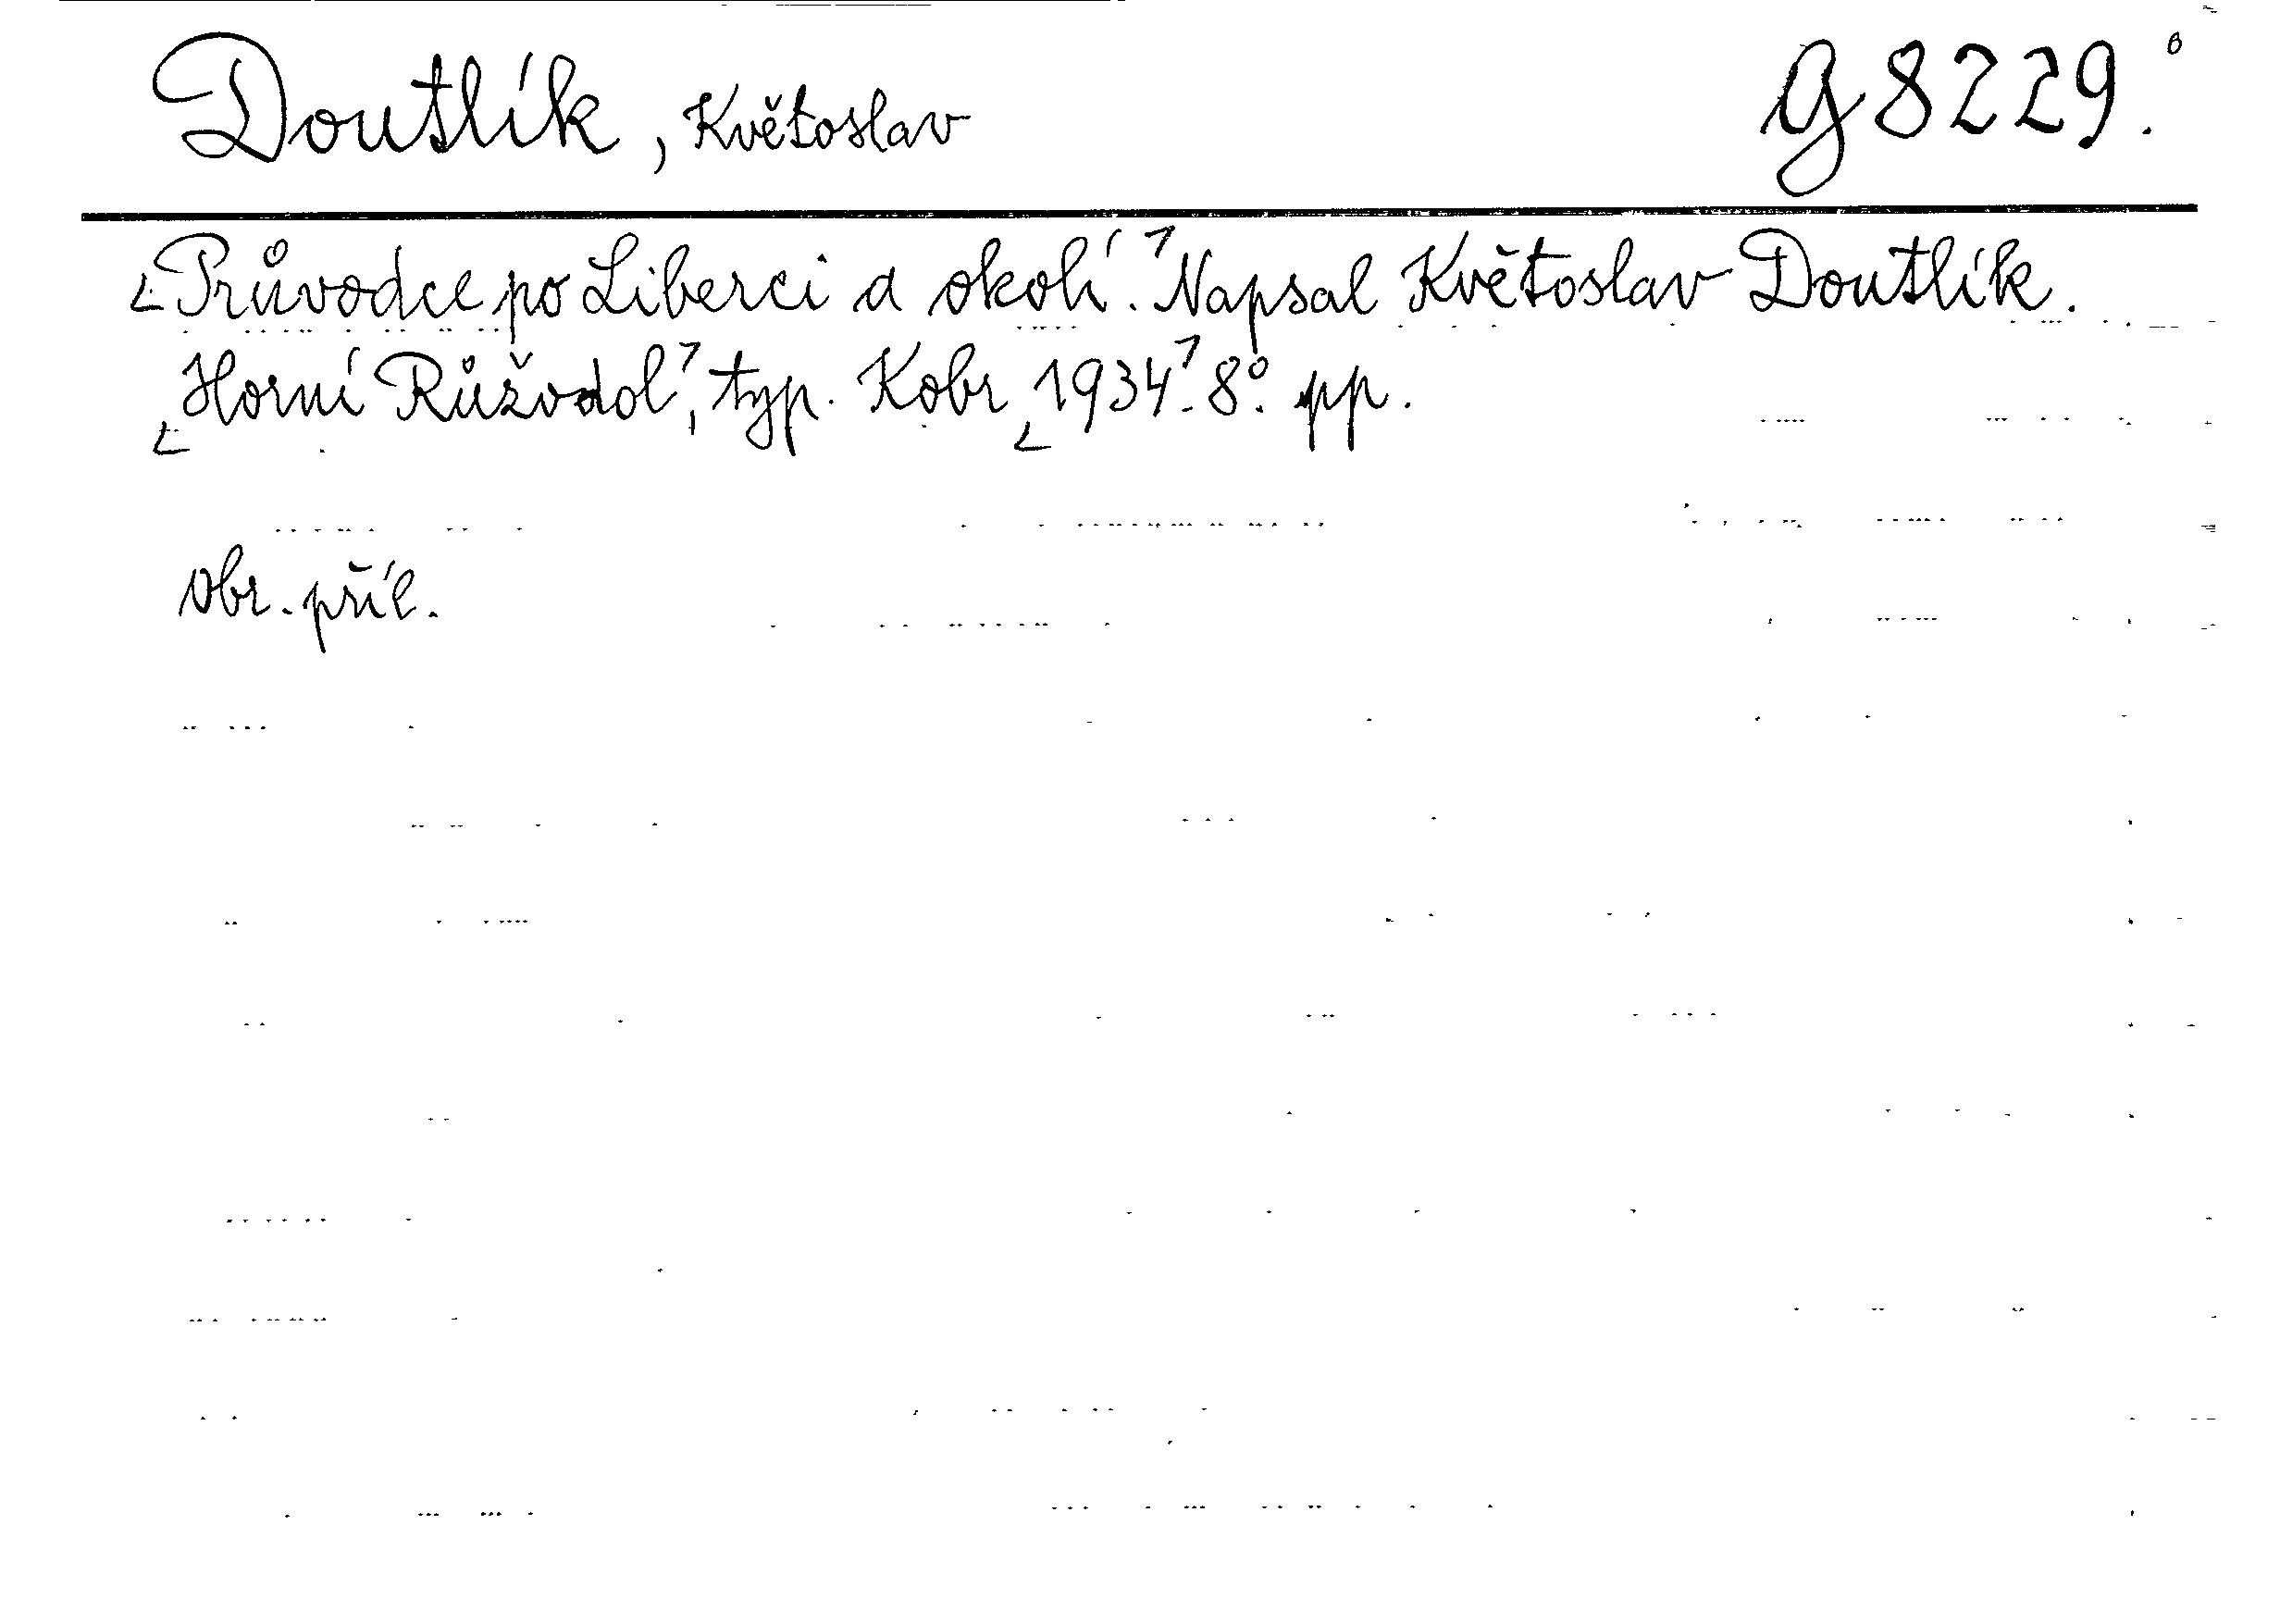 Doutlík, Květoslav G 8229.
Průvodce po Liberci a okolí. Napsal Květoslav Doutlík.
Horní Růžodol, typ. Kobr 1934. 8°. pp.
Obr. příl.